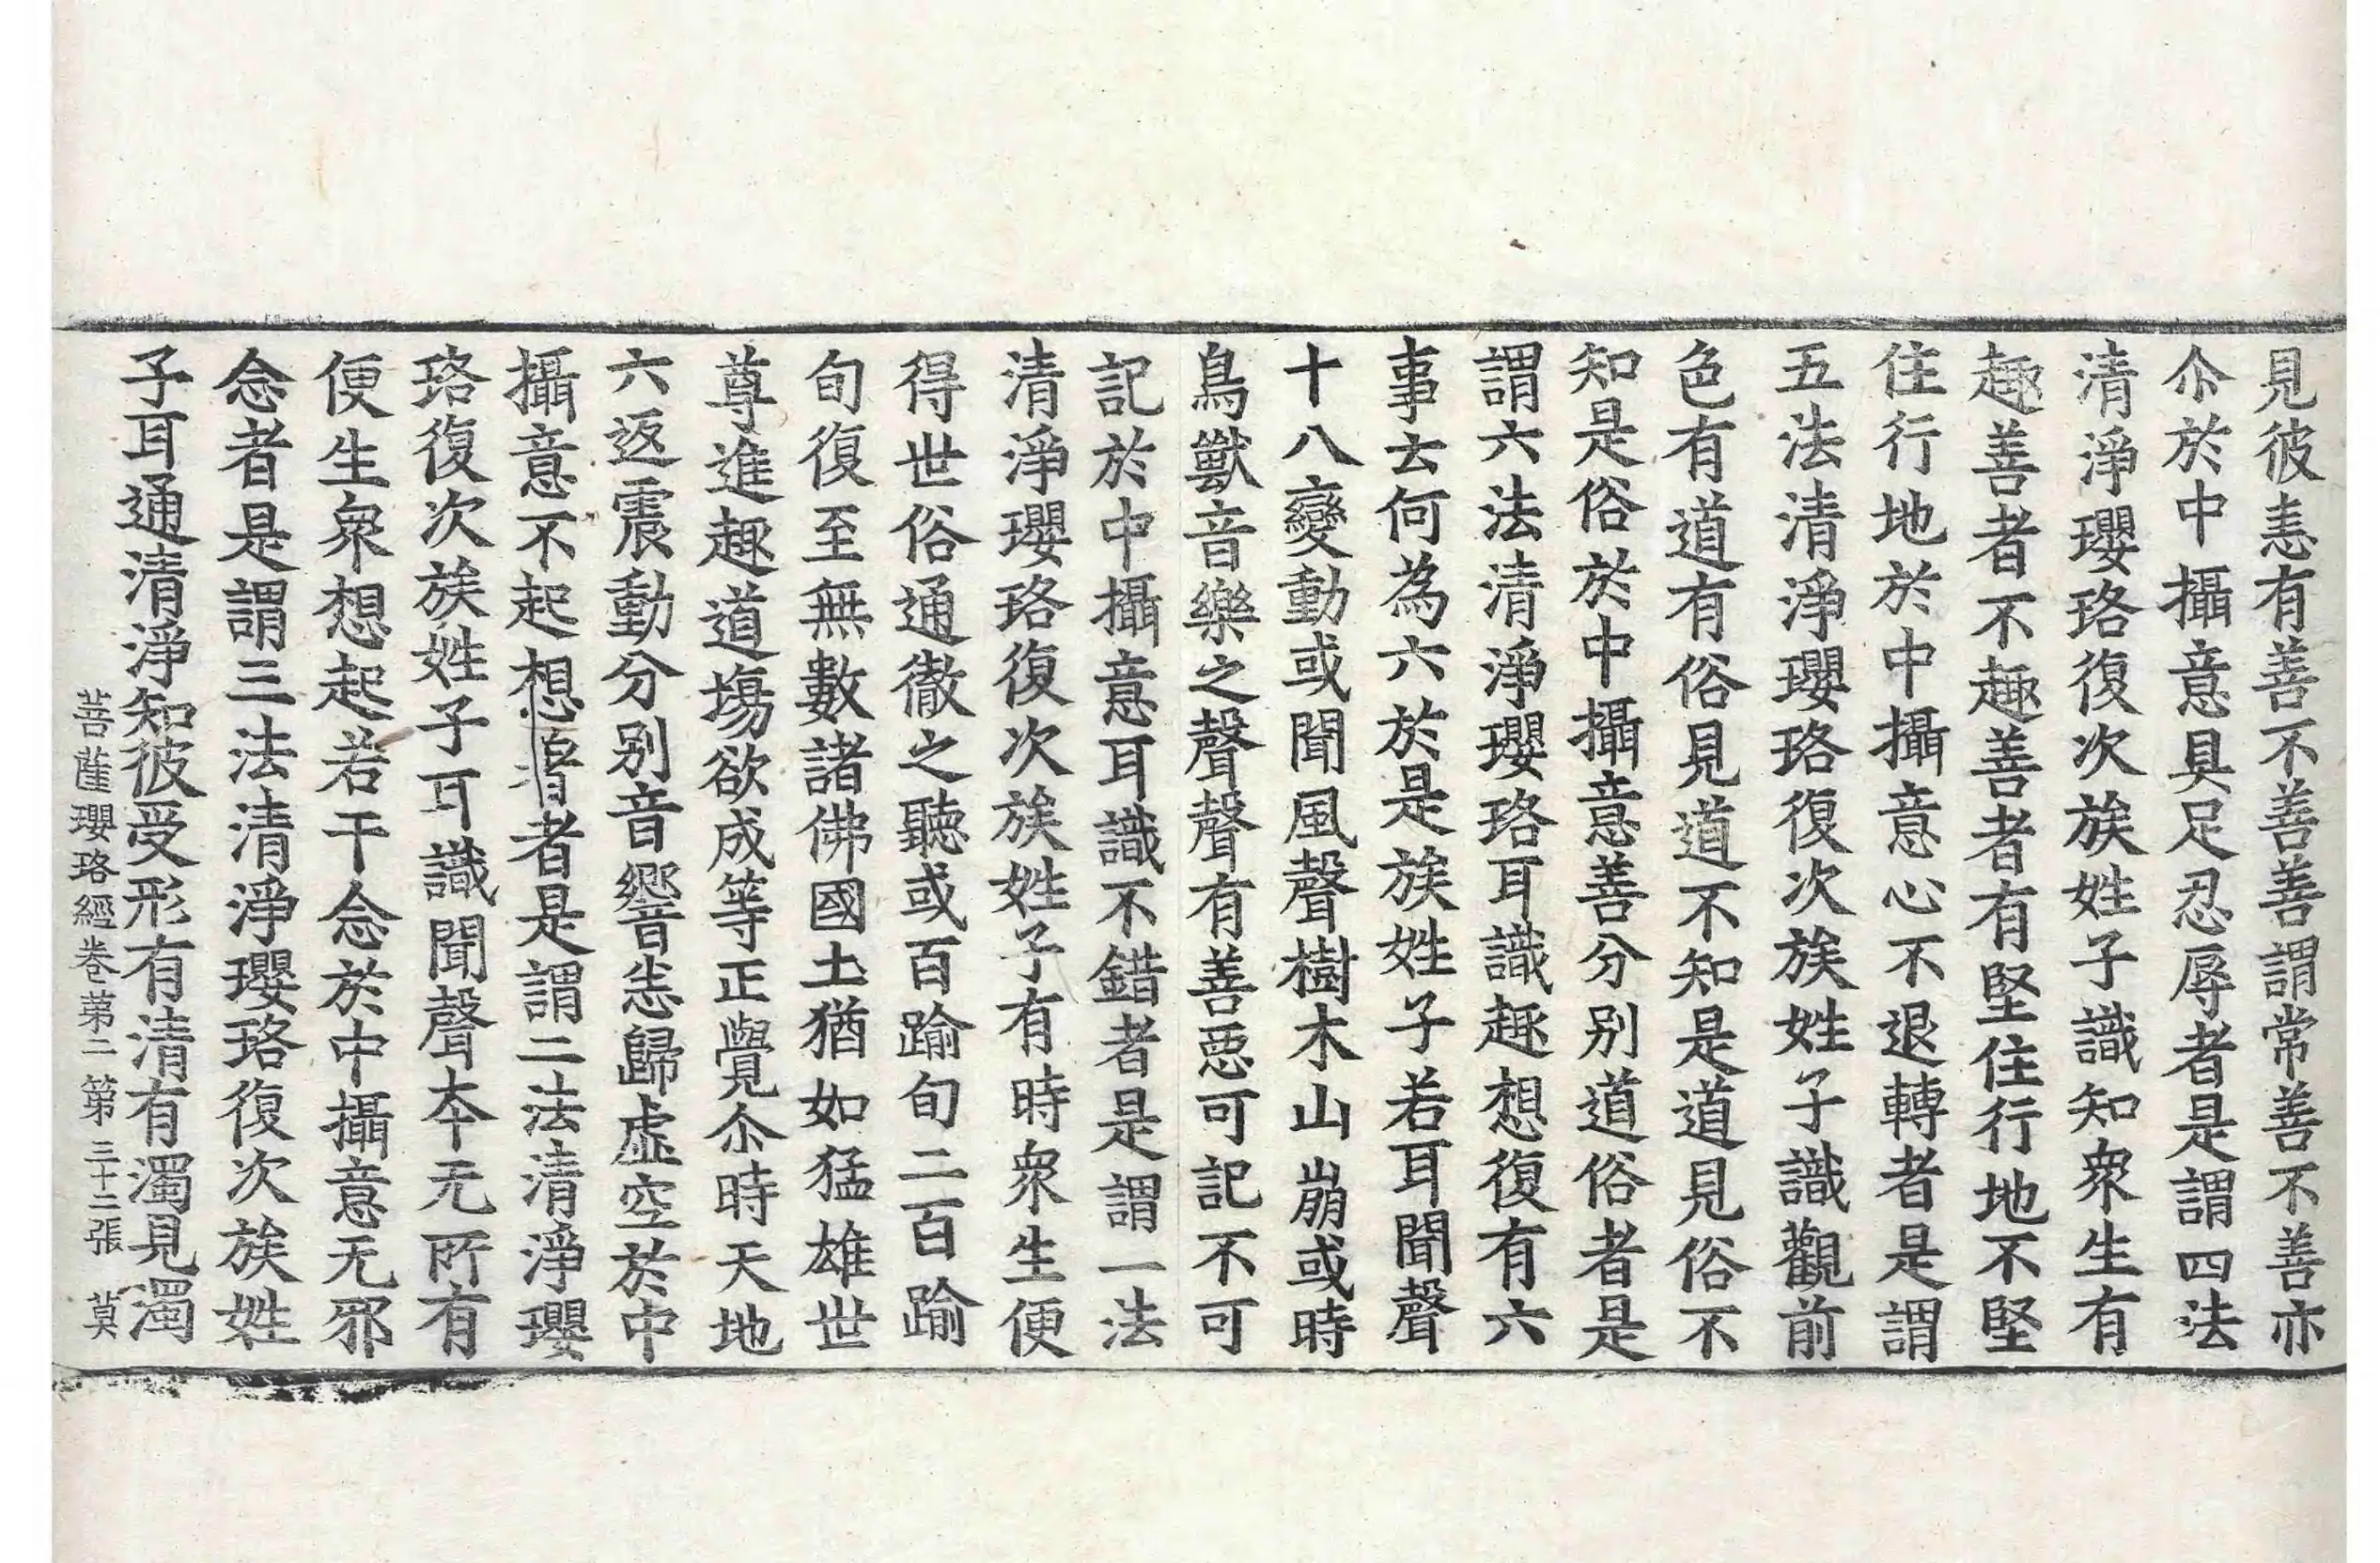 見彼恚有善不善善謂常善不善亦
尒於中攝意具足忍辱者是謂四法
清淨瓔珞復次族姓子識知衆生有
趣善者不趣善者有堅住行地不堅
住行地於中攝意心不退轉者是謂
五法清淨瓔珞復次族姓子識觀前
色有道有俗見道不知是道見俗不
知是俗於中攝意善分别道俗者是
謂六法清淨瓔珞耳識趣想復有六
事云何為六於是族姓子若耳聞聲
十八變動或聞風聲樹木山崩或時
鳥獸音樂之聲聲有善惡可記不可
記於中攝意耳識不錯者是謂一法
清淨瓔珞復次族姓子有時衆生便
得世俗通徹之聽或百踰旬二百踰
旬復至無數諸佛國土猶如猛雄世
尊進趣道場欲成等正覺尒時天地
六返震動分别音響恚歸虛空於中
攝意不起想著者是謂二法清淨瓔
珞復次族姓子耳識聞聲夲无所有
便生衆想起若干念於中攝意无邪
念者是謂三法清淨瓔珞復次族姓
子耳通清淨知彼受形有清有濁見濁
菩薩瓔珞經卷第二 第三十二張 莫